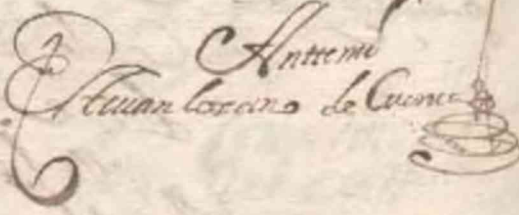 Antte mi
Esteuan lorano de Cuenca